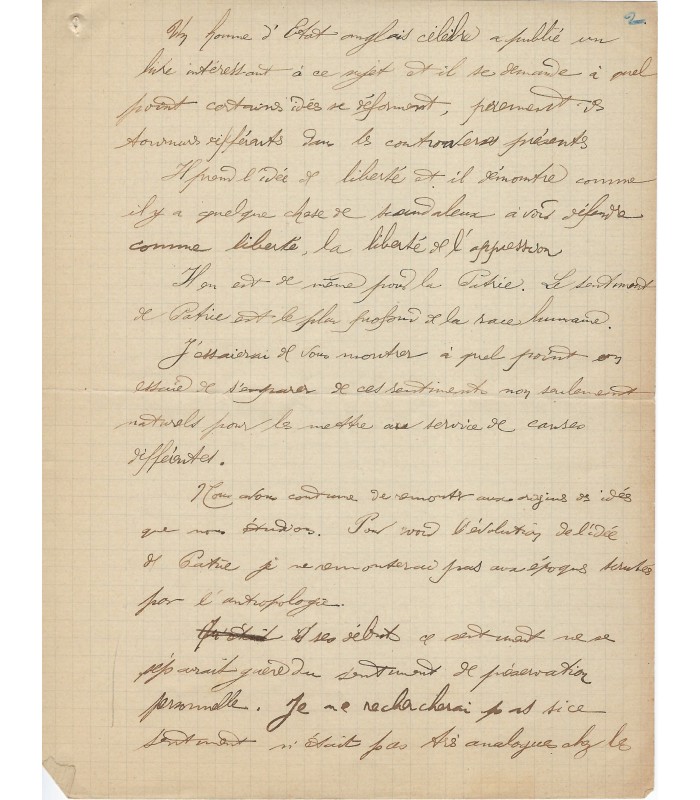 2.
Un homme d'Etat anglais célèbre a publié un
livre intéressant à ce sujet et il se demande à quel
point certaines idés se déforment, prennent des
tournures différents dans les controverses présentes
Il prend l'idée de liberté et il démontre comme
il y a quelque chose de scandaleux à voir défendre
comme liberté, la liberté de l'oppression
Il en est de même pour la Patrie. Le sentiment
de Patrie est le plus profond de la race humaine.
J'essaierai de vous montrer à quel point on
essaie de s'emparer de ces sentiments non seulement
naturels pour les mettre au service de causes
différentes.
Nous avons coutume de remonter aux origines des idés
que nous étudions. Pour voir l'évolution de l'idée
de Patrie je ne remonterai pas aux époques
par l'antropologie.
A ses débuts ce sentiment ne se
séparait guère du sentiment de préservation
personnelle. Je ne rechercherai pas si ce
sentiment n'était pas très analogue chez les